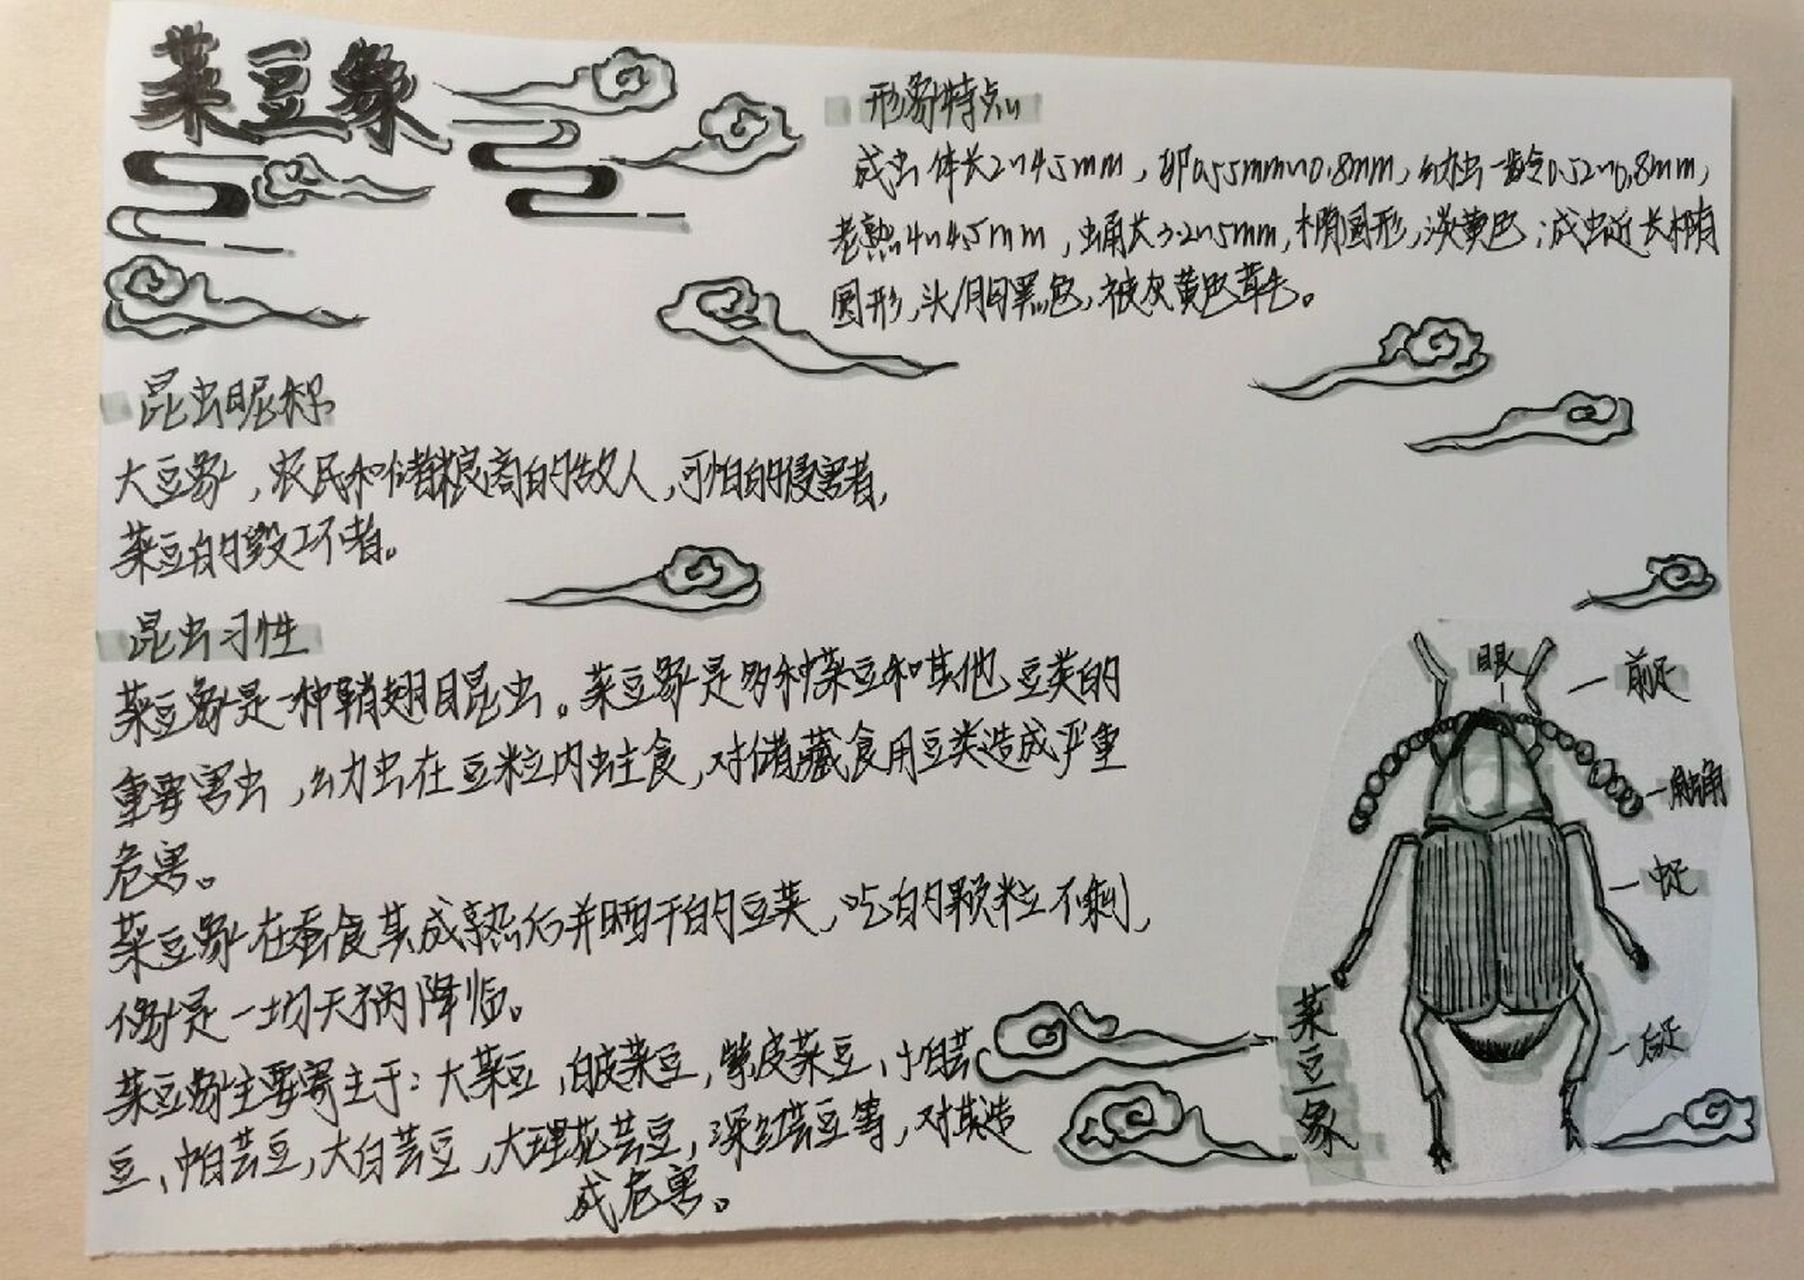 菜豆象
形象特点
成虫体长2~4.5mm，卵0.55mm~0.8mm，幼虫一龄0.52~0.8mm，
老熟4~4.5mm，蛹长3.2~5mm，椭圆形，淡黄色；成虫近长椭
圆形，头/胸黑色，被灰黄色茸毛。
昆虫昵称
大豆象，农民和储粮商的敌人，可怕的侵害者，
菜豆的毁坏者。
昆虫习性
菜豆象是一种鞘翅目昆虫。菜豆象是多种菜豆和其他豆类的
重要害虫，幼虫在豆粒内蛀食，对储藏食用豆类造成严重
危害。
菜豆象在蚕食其成熟后并晒干的豆荚，吃的颗粒不剩，
像是一场天祸降临。
菜豆象主要寄主于：大菜豆，白皮菜豆，紫皮菜豆、小白芸
豆、帕芸豆，大白芸豆，大理花芸豆，深红芸豆等，对其造
成危害。
眼
前足
触角
中足
后足
菜豆象